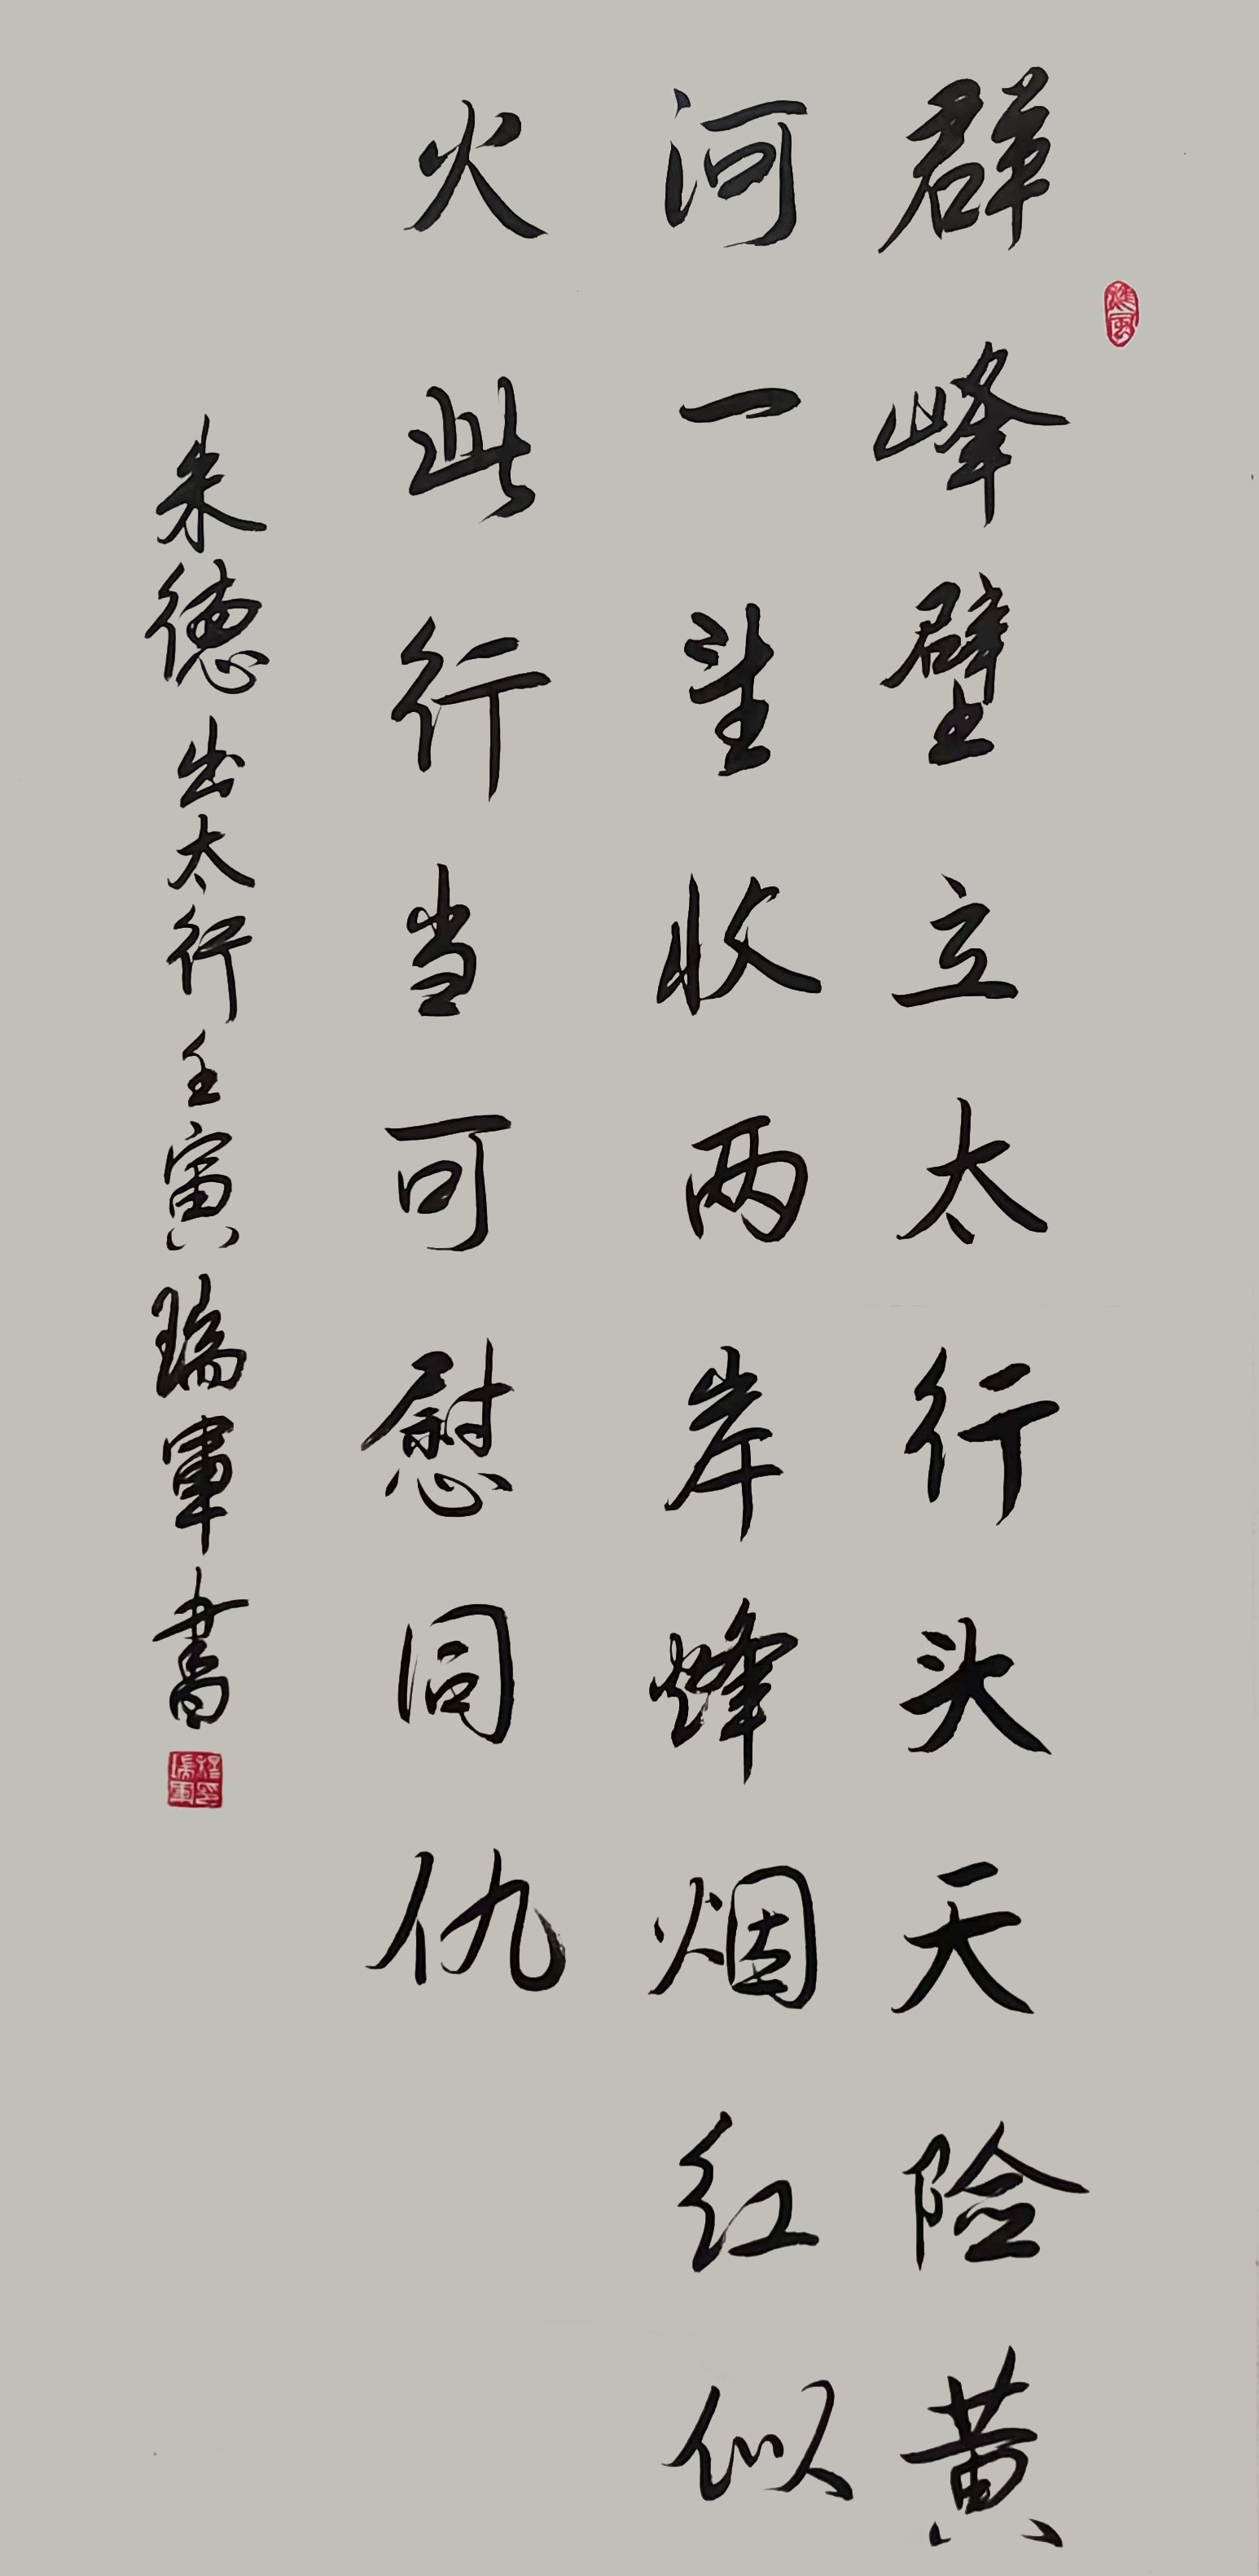 群峰壁立太行头天险黄
河一望收两岸烽烟红似
火此行当可慰同仇
朱德出太行壬寅瑞军书